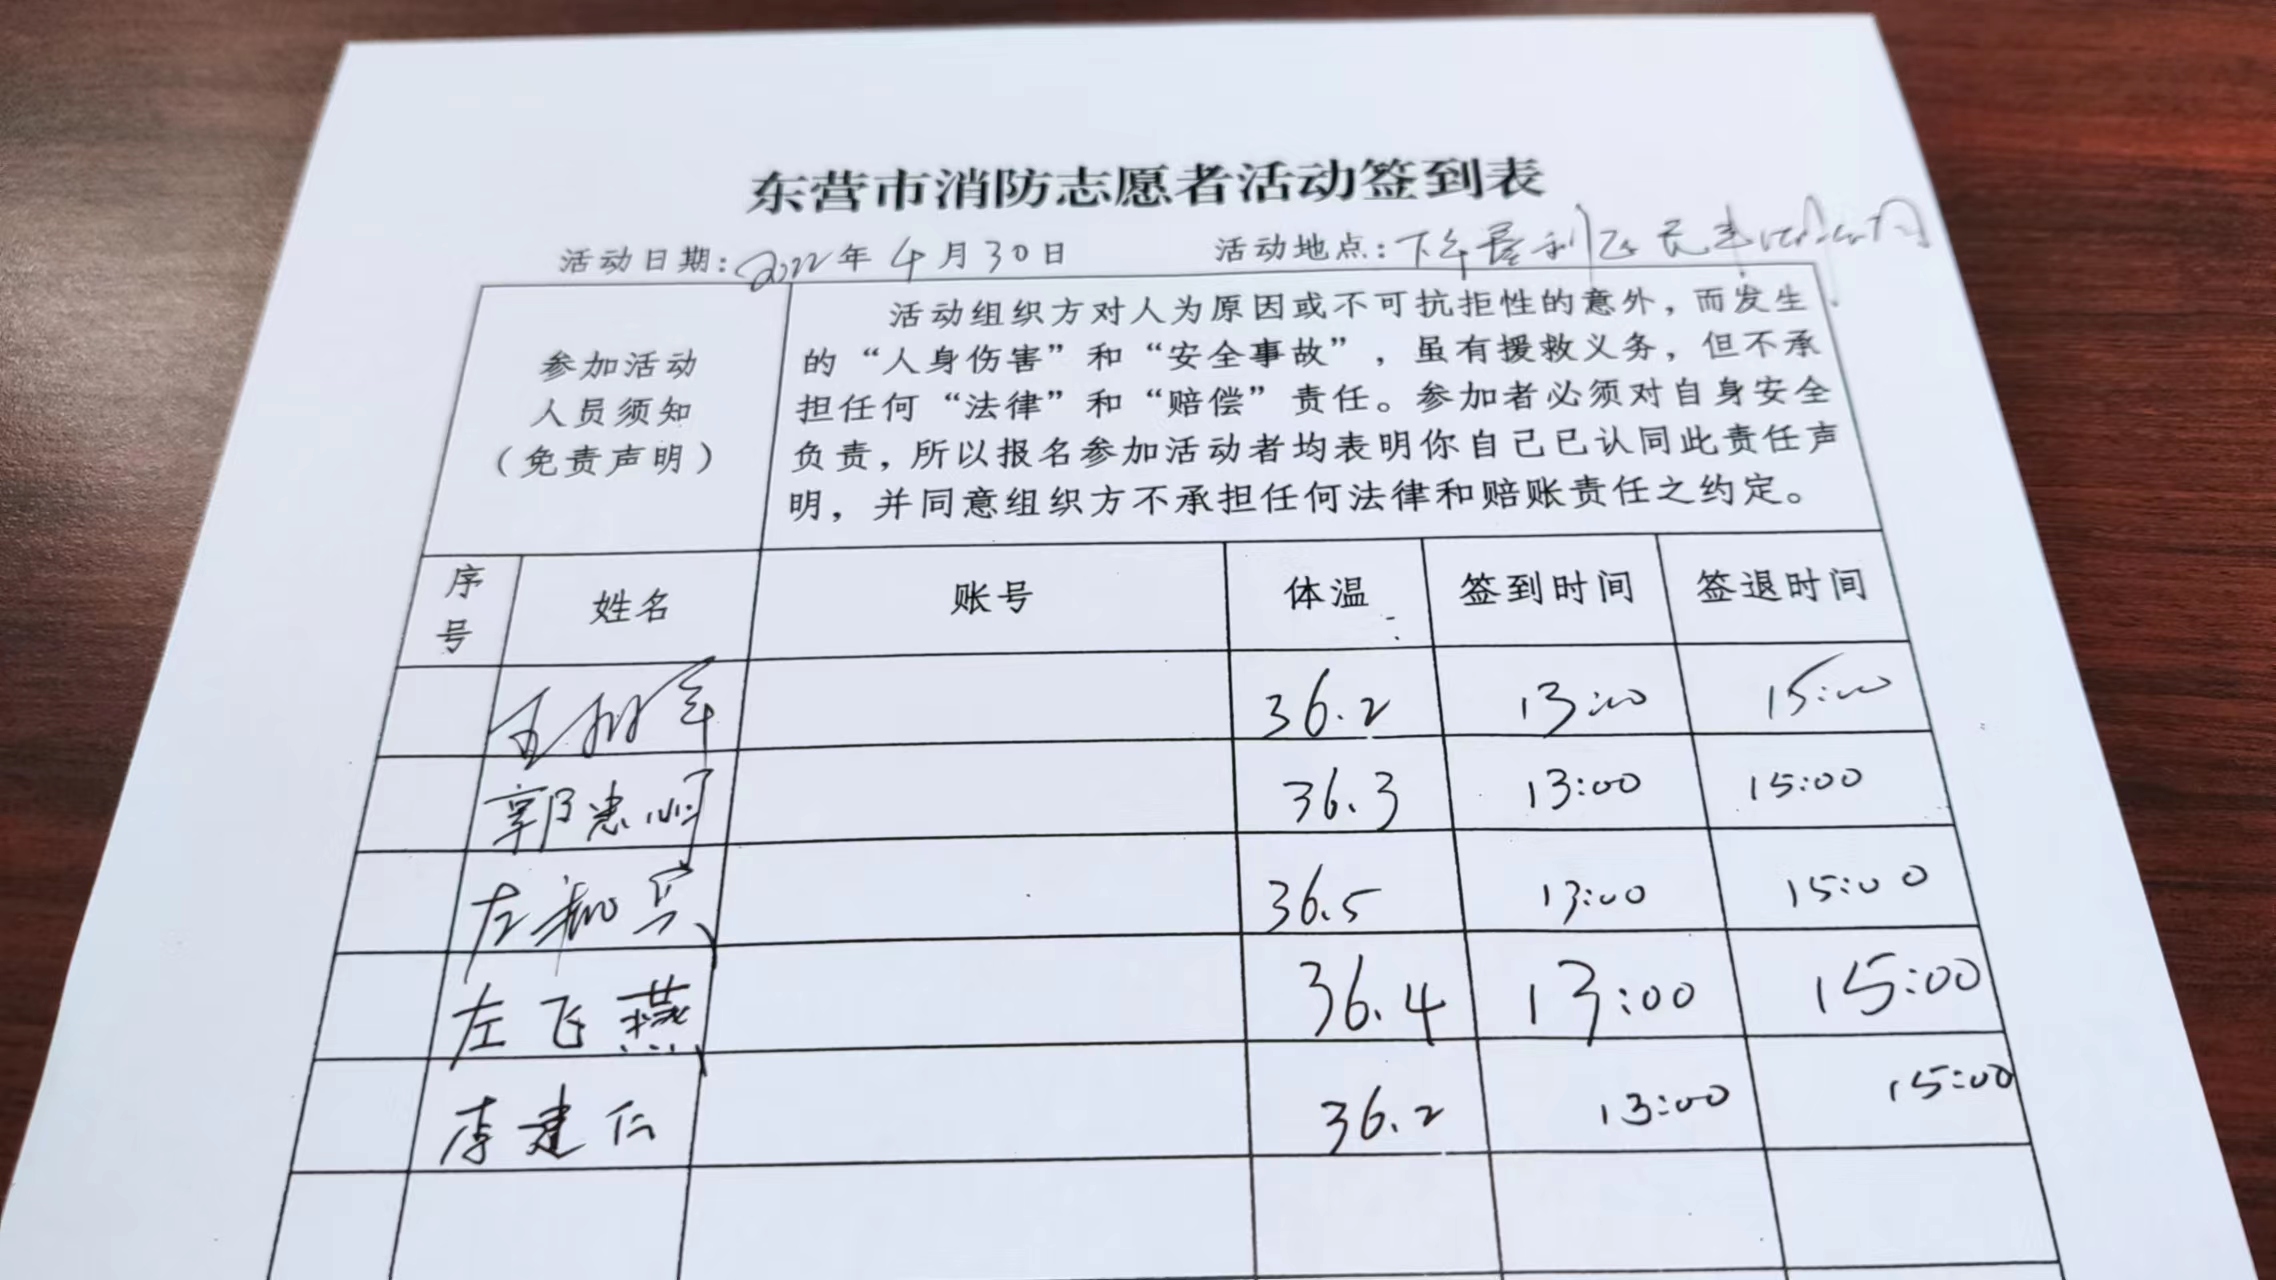 东营市消防志愿者活动签到表
活动日期：2022年4月30日 活动地点：下午垦利区
参加活动
人员须知
（免责声明）
活动组织方对人为原因或不可抗拒性的意外，而发生
的“人身伤害”和“安全事故”，虽有援救义务，但不承
担任何“法律”和“赔偿”责任。参加者必须对自身安全
负责，所以报名参加活动者均表明你自己已认同此责任声
明，并同意组织方不承担任何法律和赔账责任之约定。
序号 姓名 账号 体温 签到时间 签退时间
36.2 13:00 15:00
郭忠顺 36.3 13:00 15:00
左 36.5 13:00 15:00
左飞燕 36.4 13:00 15:00
李建仁 36.2 13:00 15:00